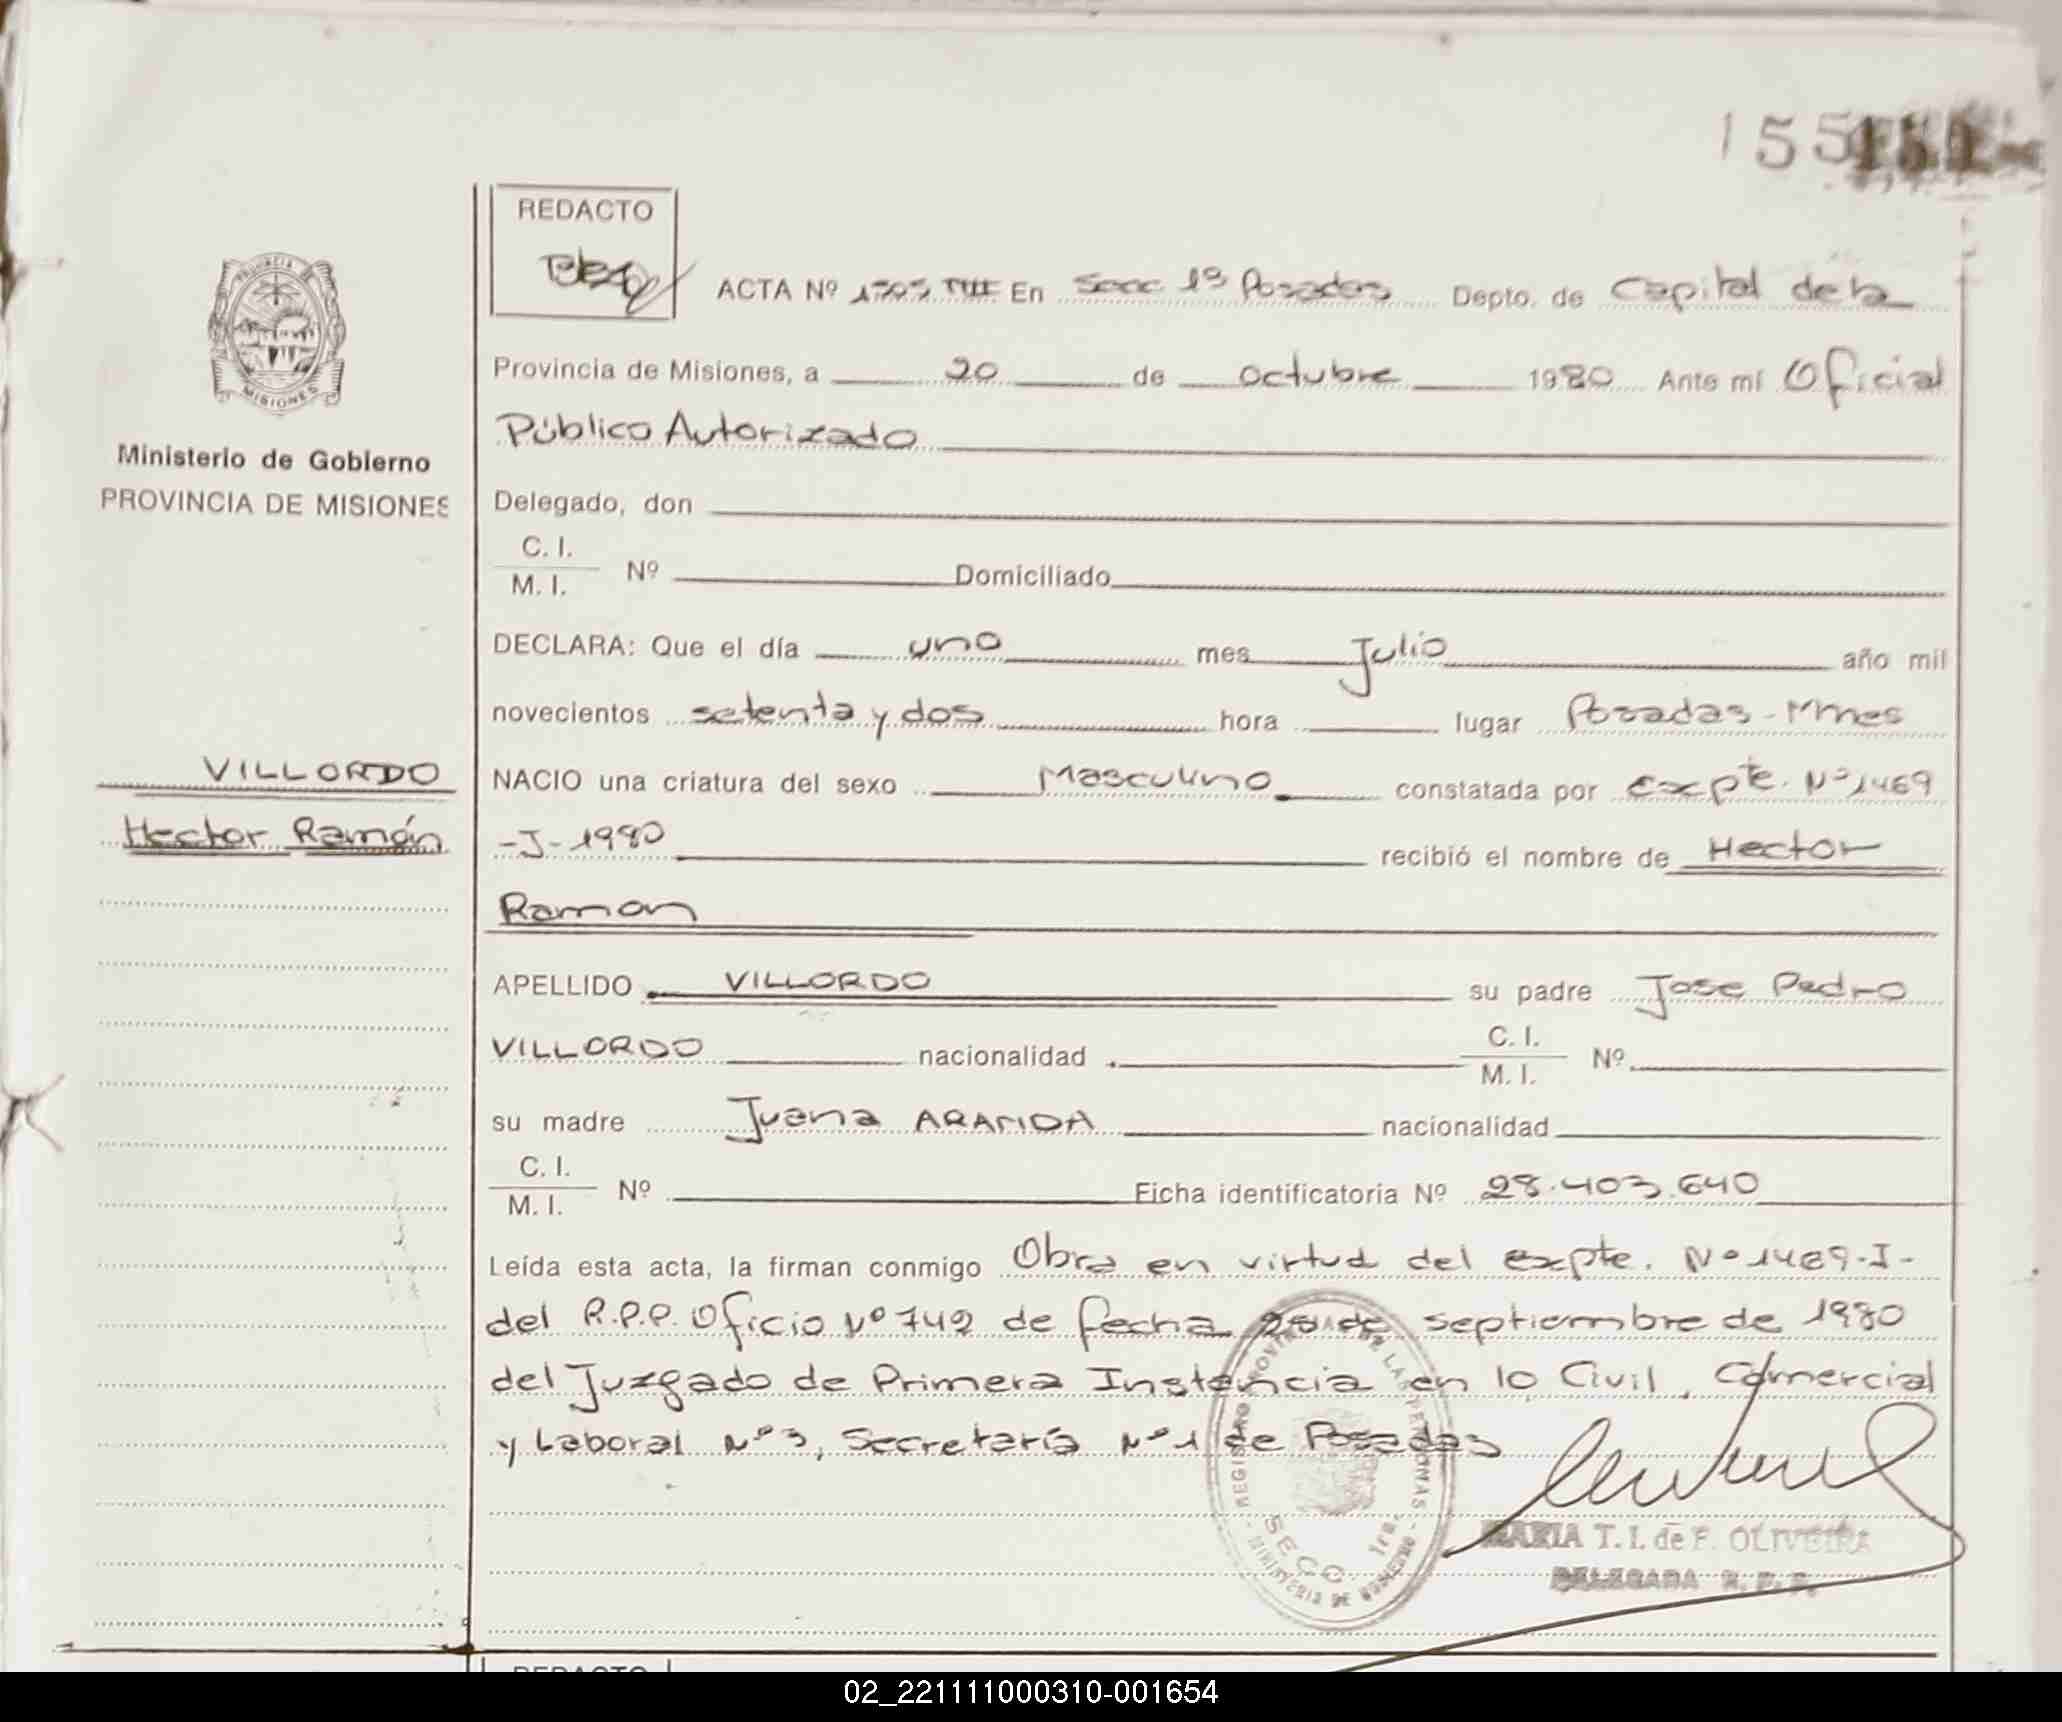 155
REDACTO
ACTA Nº 1505 TIII En Secc 1ª Posadas Depto. de Capital de la
Provincia de Misiones, a 20 de octubre 1980 Ante mí Oficial
Público Autorizado
Ministerio de Gobierno
PROVINCIA DE MISIONES
Delegado, don
C. I.
M. I. Nº Domiciliado
DECLARA: Que el día uno mes Julio año mil
novecientos setenta y dos hora lugar Posadas - Mnes
VILLORDO
Hector Ramón
NACIO una criatura del sexo Masculino constatada por Expte. Nº 1469
-I-1980 recibió el nombre de Hector
Ramon
APELLIDO VILLORDO su padre Jose Pedro
VILLORDO nacionalidad C. I.
M. I. Nº
su madre Juana ARANDA nacionalidad
C. I.
M. I. Nº Ficha identificatoria Nº 28.403.640
Leída esta acta, la firman conmigo Obra en virtud del expte. Nº 1469-I-
del R.P.P. Oficio Nº 742 de fecha de septiembre de 1980
del Juzgado de Primera Instancia en lo Civil, Comercial
y Laboral Nº 3, Secretaría Nº 1 de Posadas
MARIA T. I. de F. OLIVEIRA
DELEGADA R. P. P.
REDACTO
02_221111000310-001654